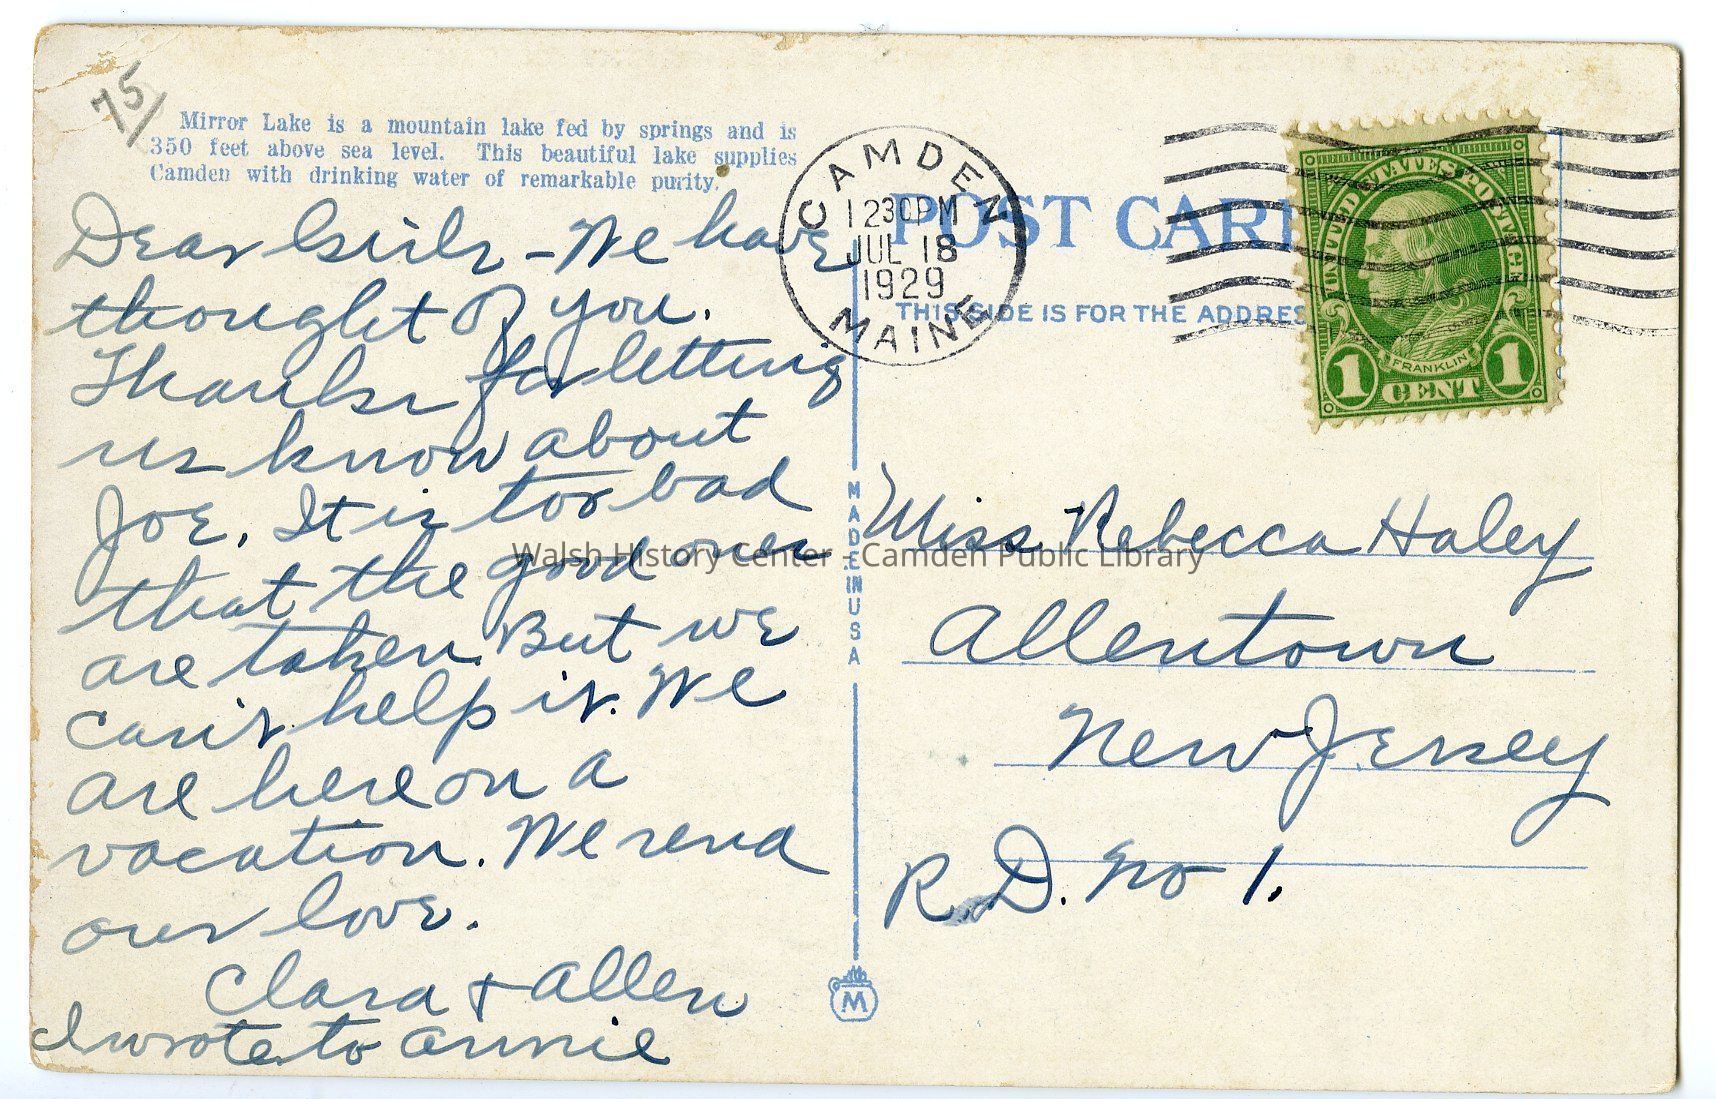 75/
Mirror Lake is a mountain lake fed by springs and is
350 feet above sea level. This beautiful lake supplies
Camden with drinking water of remarkable purity.
Dear Girls - We have
thought of you.
Thanks for letting
us know about
Joe. It is too bad
that the good ones
are taken. But we
can't help it. We
are here on a
vacation. We send
our love.
Clara + Allen
I wrote to Annie
CAMDEN
12 30 PM
JUL 18
1929
MAINE
POST CAR
THIS SIDE IS FOR THE ADDRES
UNITED STATES POSTAGE
FRANKLIN
1 CENT 1
MADE IN USA
Miss Rebecca Haley
Allentown
New Jersey
R.D. No 1.
M
Walsh History Center - Camden Public Library